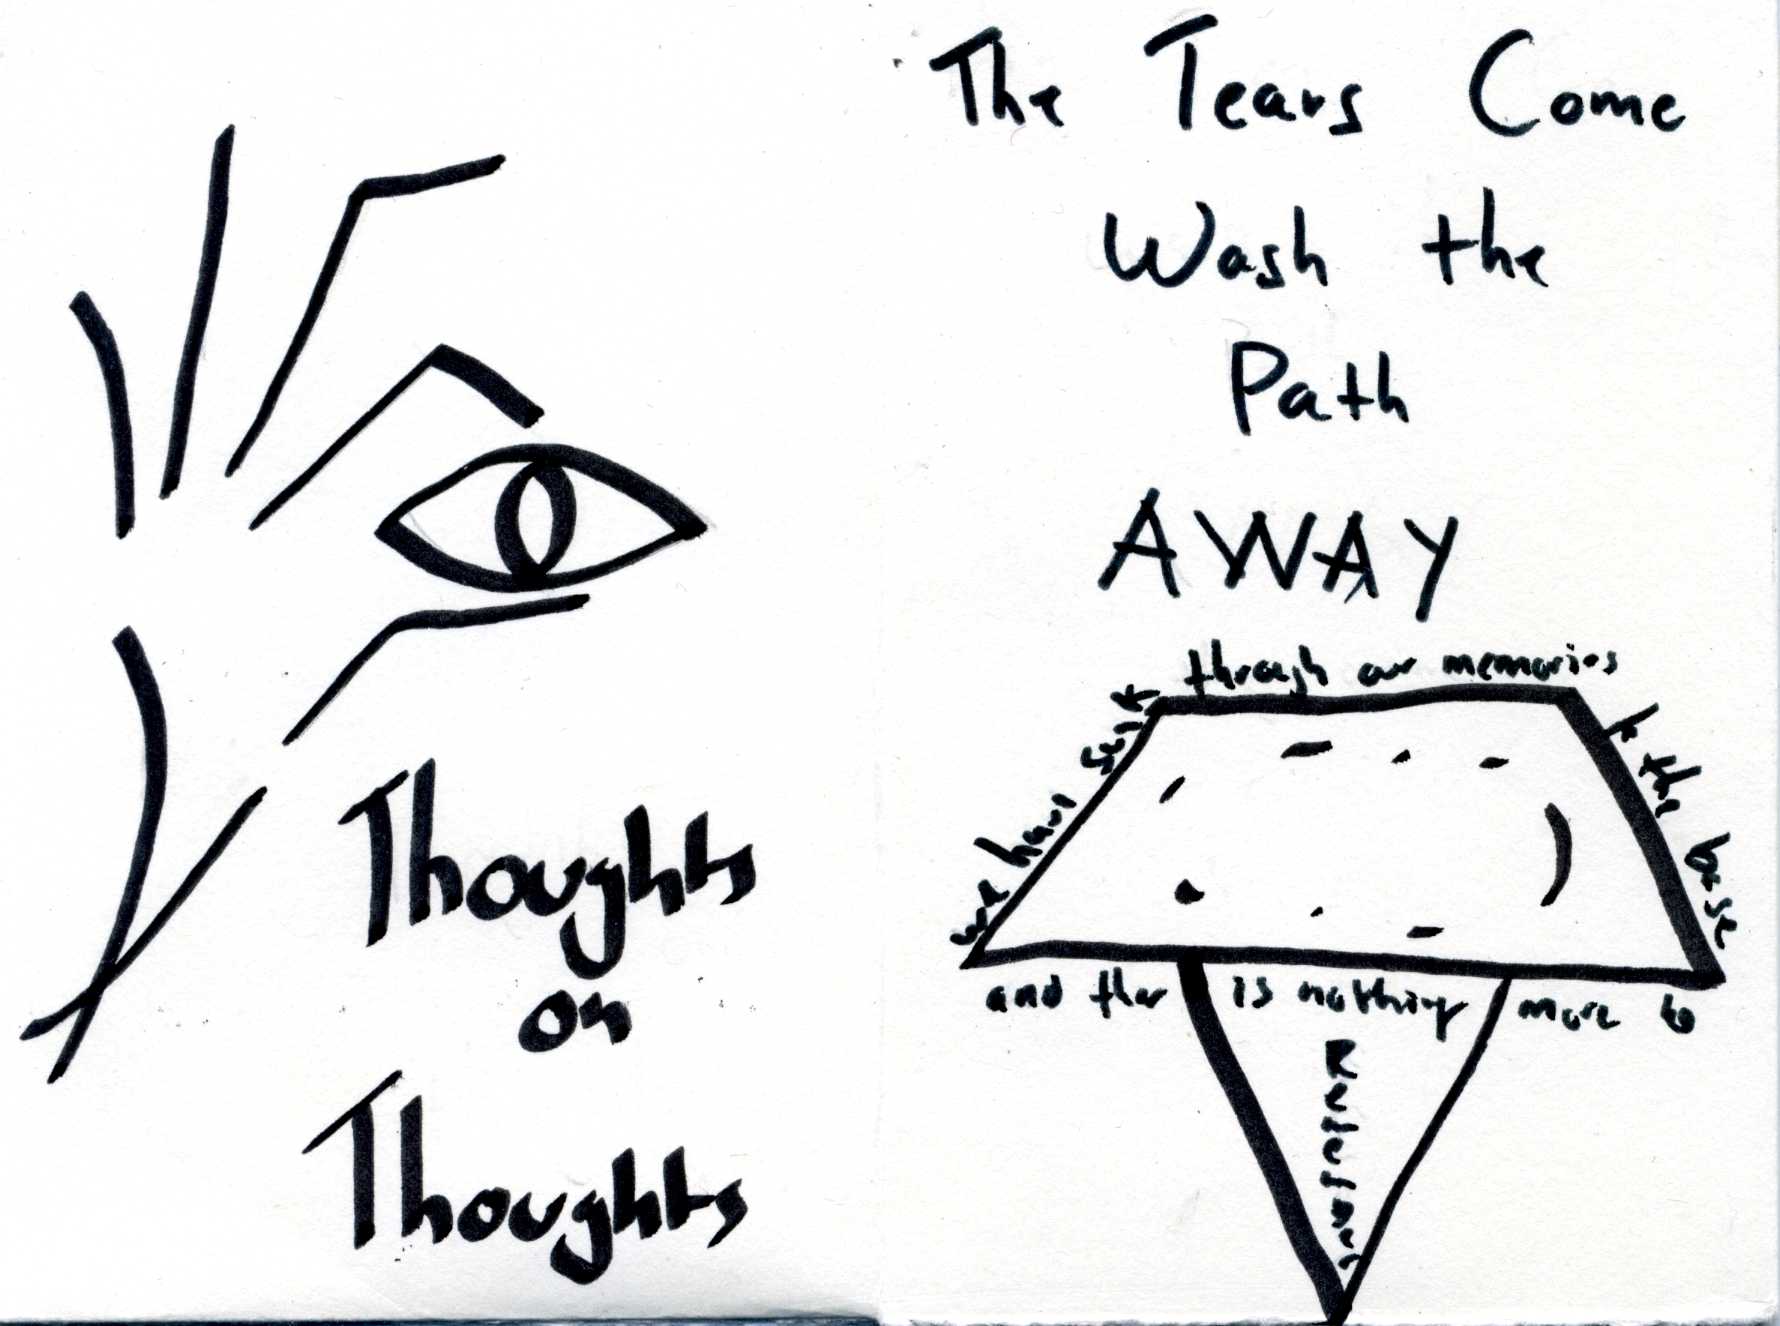 Thoughts
on
Thoughts
The Tears Come
Wash the
Path
AWAY
we have
through our memories
to the base
and ther is nothing more to